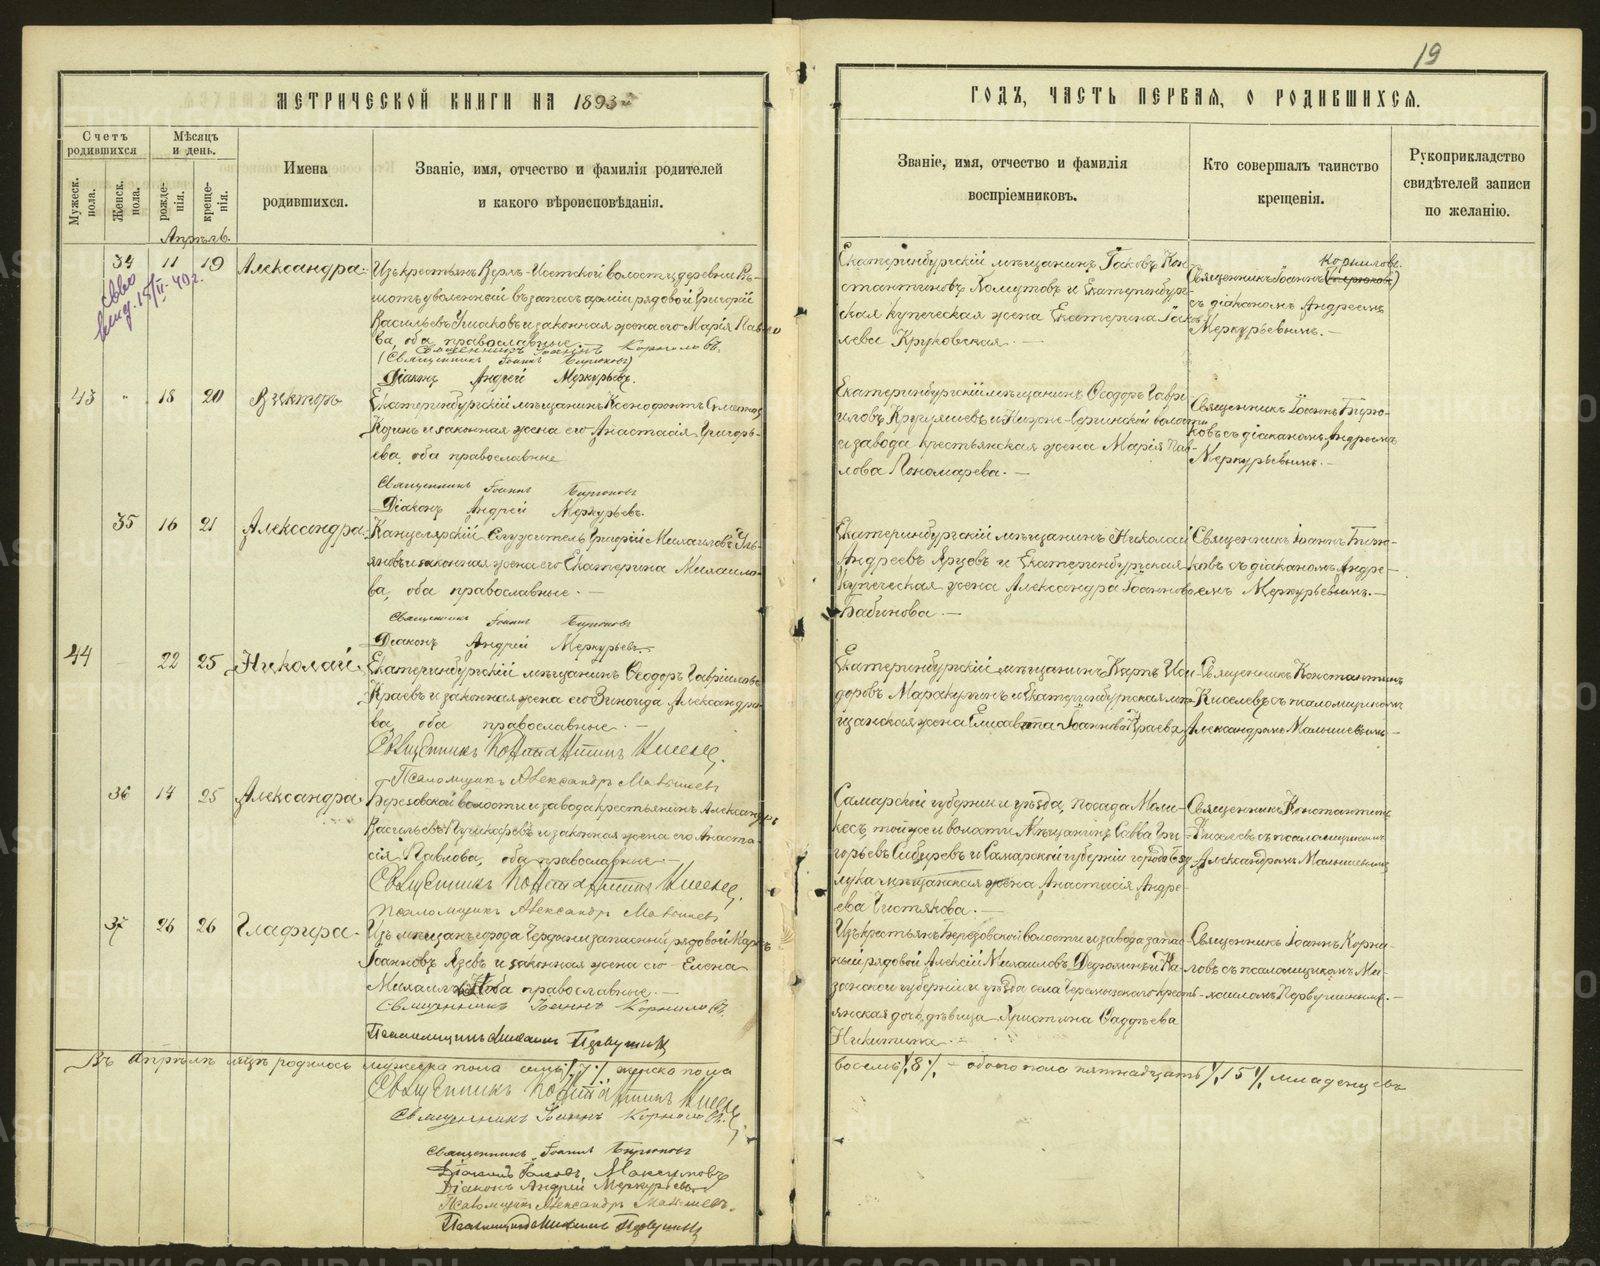 19
МЕТРИЧЕСКОЙ КНИГИ НА 1893й
ГОДЪ, ЧАСТЬ ПЕРВАЯ, О РОДИВШИХСЯ.
Счетъ родившихся
Мужеск. пола.
Женск. пола.
Мѣсяцъ и день.
рожденія.
крещенія.
Имена
родившихся.
Званіе, имя, отчество и фамилія родителей
и какого вѣроисповѣданія.
Званіе, имя, отчество и фамилія
воспріемниковъ.
Кто совершалъ таинство
крещенія.
Рукоприкладство
свидѣтелей записи
по желанію.
Апрѣль.
34 11 19 Александра
Изъ крестьянъ Верхъ-Исетской волости деревни
уволенный въ запасъ арміи рядовой Григорій
Васильевъ Ушаковъ и законная жена его Марія Павло
ва, оба православные
Священникъ Іоаннъ Корниловъ.
(Священникъ Іоаннъ Бирюковъ)
Діаконъ Андрей Меркурьевъ.
Екатеринбургскій мѣщанинъ Іаковъ Кон-
стантиновъ Хомутовъ и Екатеринбург-
ская купеческая жена Екатерина Іаков
лева Круковская. —
Корниловъ.
Священникъ Іоаннъ (Бирюковъ)
съ діакономъ Андреемъ
Меркурьевымъ. —
43 " 18 20 Викторъ
Екатеринбургскій мѣщанинъ Ксенофонтъ
и законная жена его Анастасія Григорь-
ева, оба православные
Священникъ Іоаннъ Бирюковъ
Діаконъ Андрей Меркурьевъ.
Екатеринбургскій мѣщанинъ Ѳеодоръ Гаври
иловъ Кругляшевъ и Нижне-Сергинской волости
и завода крестьянская жена Марія Пав-
лова Пономарева. —
Священникъ Іоаннъ Бирю-
ковъ съ діакономъ Андреемъ
Меркурьевымъ. —
35 16 21 Александра
Канцелярскій Служитель Григорій Михаиловъ Уль-
яновъ и законная жена его Екатерина Михаило-
ва, оба православные. —
Священникъ Іоаннъ Бирюковъ
Діаконъ Андрей Меркурьевъ.
Екатеринбургскій мѣщанинъ Николай
Андреевъ Ярцовъ и Екатеринбургская
купеческая жена Александра Іоаннова
Бабинова —
Священникъ Іоаннъ Бирю-
ковъ съ діакономъ Андре-
емъ Меркурьевымъ. —
44 22 25 Николай
Екатеринбургскій мѣщанинъ Ѳеодоръ Гавріиловъ
Краевъ и законная жена его Зиноида Александро
ва, оба православные. —
Священникъ Константинъ Киселевъ.
Псаломщикъ Александръ Малышевъ
Екатеринбургскій мѣщанинъ Карпъ Иси
доровъ Маракулинъ и Екатеринбургская мѣ-
щанская жена Елисавета Іоаннова Краева
Священникъ Константинъ
Киселевъ съ псаломщикомъ
Александромъ Малышевымъ —
36 14 25 Александра
Березовской волости и завода крестьянинъ Александръ
Васильевъ и законная жена его Анаста-
сія Павлова, оба православные —
Священникъ Константинъ Киселевъ.
Псаломщикъ Александръ Малышевъ
Самарской губерніи и уѣзда, посада Меле-
кесъ, той же волости Мѣщанинъ Савва Гри-
горьевъ Сибиревъ и Самарской губерніи города Бу
лука мѣщанская жена Анастасія Андре-
ева Чистякова. —
Священникъ Константинъ
Киселевъ съ псаломщикомъ
Александромъ Малышевымъ
37 26 26 Глафира
Изъ мѣщанъ города Чердыни запасный рядовой Маркъ
Іоанновъ Язевъ и законная жена его Елена
Михаилова оба православные. —
Священникъ Іоаннъ Корниловъ.
Псаломщикъ Михаилъ Первушинъ
Изъ крестьянъ Березовской волости и завода запас-
ный рядовой Алексій Михаиловъ Дедюхинъ и Ка-
занской губерніи и уѣзда села крестъ-
янская дочь, дѣвица Христина Ѳаддѣева
Никитина. —
Священникъ Іоаннъ Корни-
ловъ съ псаломщикомъ Ми-
хаиломъ Первушинымъ. —
Въ апрѣлѣ мцѣ родилось мужеска пола семь %7% женска пола
восемь %8% — обоего пола пятнадцать %15% младенцевъ
Священникъ Константинъ Киселевъ
Священникъ Іоаннъ Корниловъ.
Священникъ Іоаннъ Бирюковъ
Діаконъ Іаковъ Максимовъ
Діаконъ Андрей Меркурьевъ
Псаломщикъ Александръ Малышевъ.
Псаломщикъ Михаилъ Первушинъ
METRIKI.GASO-URAL.RU